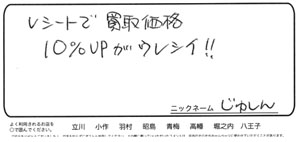 レシートで買取価格
10%UPがウレシイ!!
ニックネーム じゅしん
よく利用されるお店を
○で囲んでください。
立川 小作 羽村 昭島 青梅 高幡 堀之内 八王子